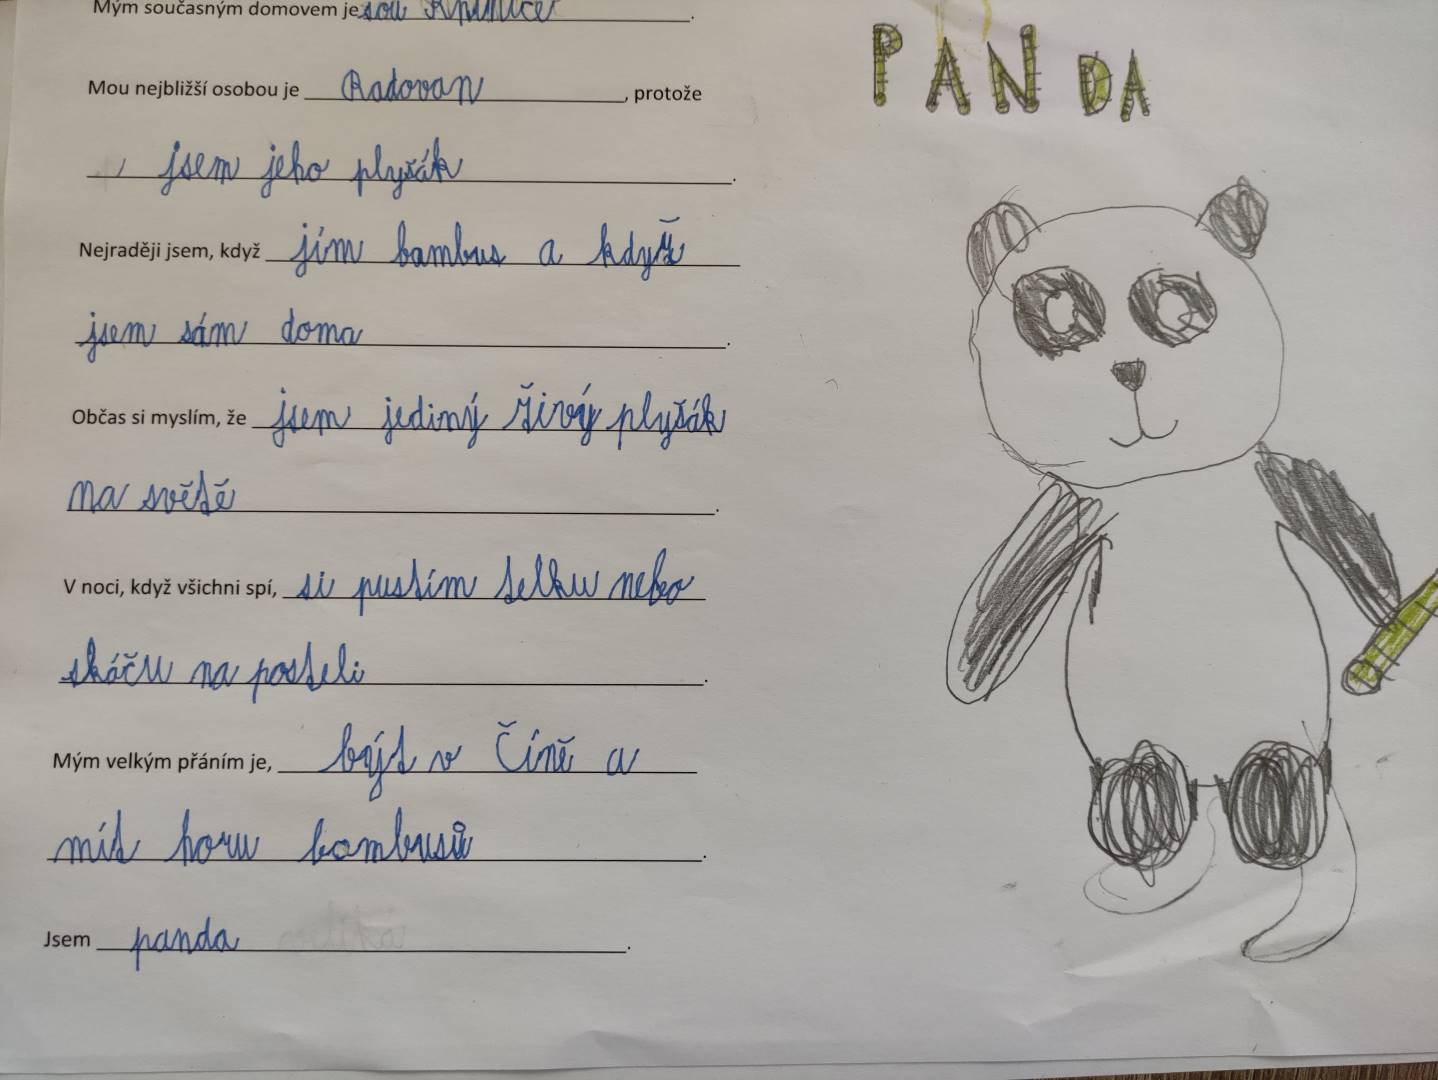 Mým současným domovem jesou Krpálice.
Mou nejbližší osobou je Radovan, protože
jsem jeho plyšák.
Nejraději jsem, když jím bambus a když
jsem sám doma.
Občas si myslím, že jsem jediný živý plyšák
na světě.
V noci, když všichni spí, si pustím telku nebo
skáču na posteli.
Mým velkým přáním je, být v Číně a
mít horu bambusů.
Jsem panda.
PANDA